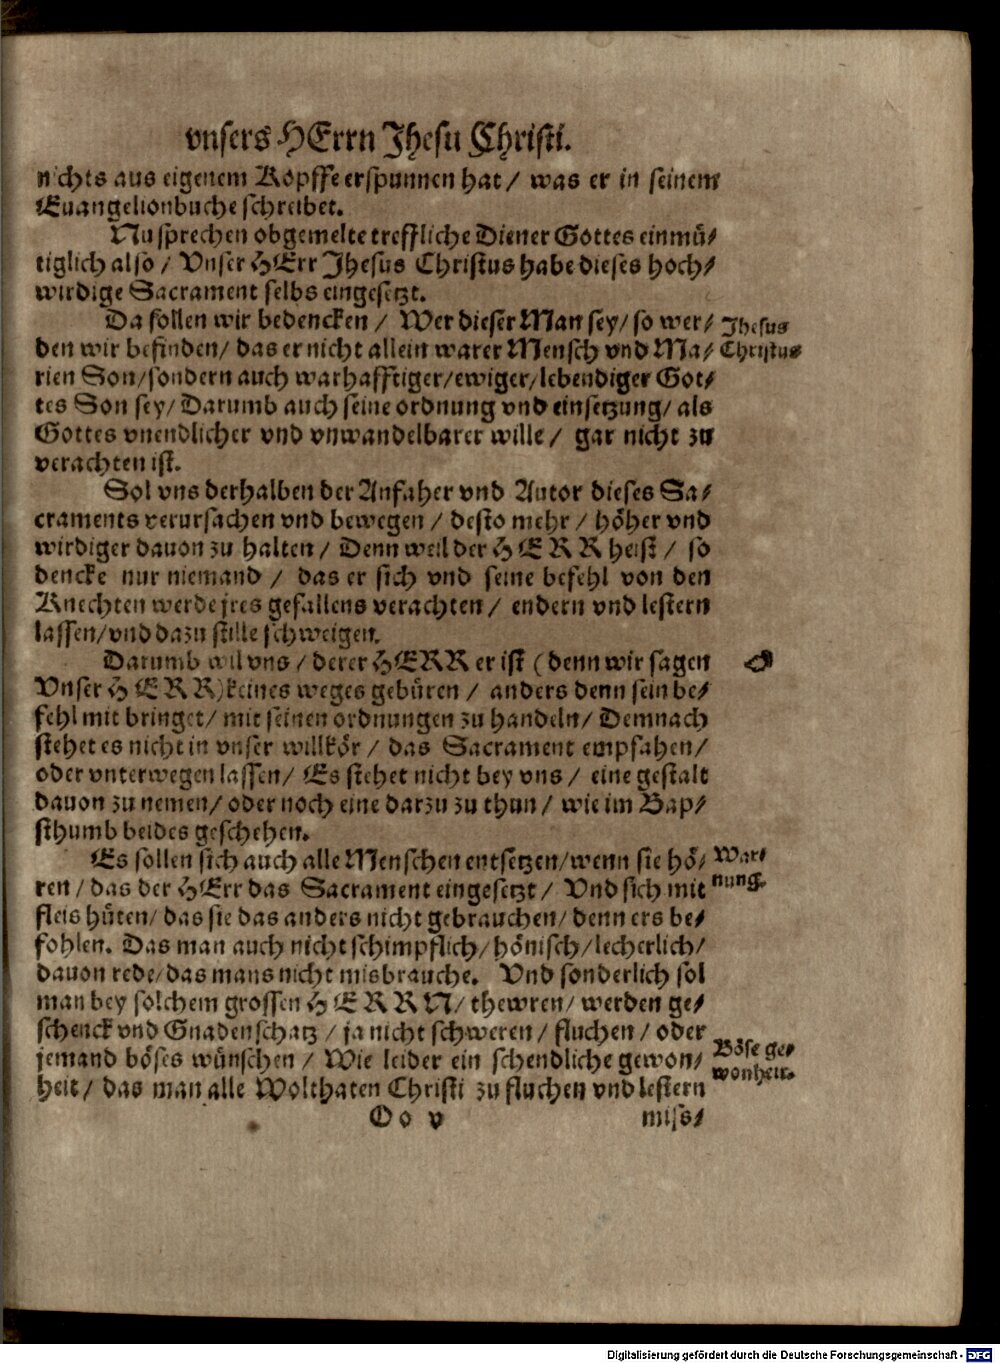 vnsers HErrn Jhesu Christi.
nichts aus eigenem Kopffe erspunnen hat / was er in seinem
Euangelionbuche schreibet.
Nu sprechen obgemelte treffliche Diener Gottes einmü⸗
tiglich also / Vnser HErr Jhesus Christus habe dieses hoch⸗
wirdige Sacrament selbs eingesetzt.
Da sollen wir bedencken / Wer dieser Man sey / so wer⸗
Jhesus
den wir befinden / das er nicht allein warer Mensch vnd Ma⸗
Christus
rien Son / sondern auch warhafftiger / ewiger / lebendiger Got⸗
tes Son sey / Darumb auch seine ordnung vnd einsetzung / als
Gottes vnendlicher vnd vnwandelbarer wille / gar nicht zu
verachten ist.
Sol vns derhalben der Anfaher vnd Autor dieses Sa⸗
craments verursachen vnd bewegen / desto mehr / höher vnd
wirdiger dauon zu halten / Denn weil der HERR heist / so
dencke nur niemand / das er sich vnd seine befehl von den
Knechten werde jres gefallens verachten / endern vnd lestern
lassen / vnd dazu stille schweigen.
Darumb wil vns / derer HERR er ist (denn wir sagen
Vnser HERR) keines weges gebüren / anders denn sein be⸗
fehl mit bringet / mit seinen ordnungen zu handeln / Demnach
stehet es nicht in vnser willkör / das Sacrament empfahen /
oder vnterwegen lassen / Es stehet nicht bey vns / eine gestalt
dauon zu nemen / oder noch eine darzu zu thun / wie im Bap⸗
sthumb beides geschehen.
Es sollen sich auch alle Menschen entsetzen / wenn sie hö⸗
War⸗
ren / das der HErr das Sacrament eingesetzt / Vnd sich mit
nung.
fleis hüten / das sie das anders nicht gebrauchen / denn ers be⸗
fohlen. Das man auch nicht schimpflich / hönisch / lecherlich /
dauon rede / das mans nicht misbrauche. Vnd sonderlich sol
man bey solchem grossen HERRN / thewren / werden ge⸗
schenck vnd Gnadenschatz / ja nicht schweren / fluchen / oder
jemand böses wünschen / Wie leider ein schendliche gewon⸗
Böse ge⸗
heit / das man alle Wolthaten Christi zu fluchen vnd lestern
wonheit.
Oo v
miss⸗
Digitalisierung gefördert durch die Deutsche Forschungsgemeinschaft - DFG